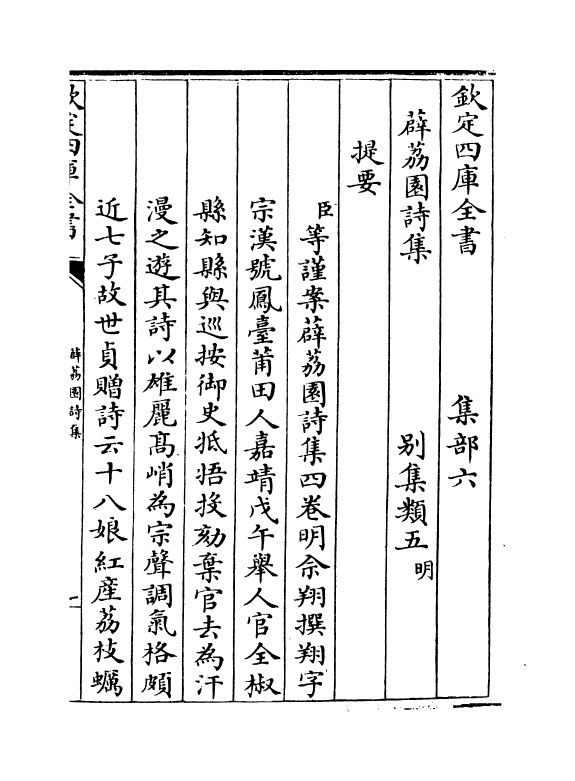 欽定四庫全書　集部六
薜荔園詩集　別集類五明
提要
臣等謹案薜荔園詩集四卷明佘翔撰翔字
宗漢號鳳臺莆田人嘉靖戊午舉人官全椒
縣知縣與巡按御史抵牾投劾棄官去為汗
漫之遊其詩以雄麗髙峭為宗聲調氣格頗
近七子故世貞贈詩云十八娘紅産荔枝蠣
欽定四庫全書
薜荔園詩集
一